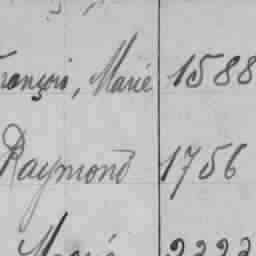 François, Marie 1588
Raymond 1756